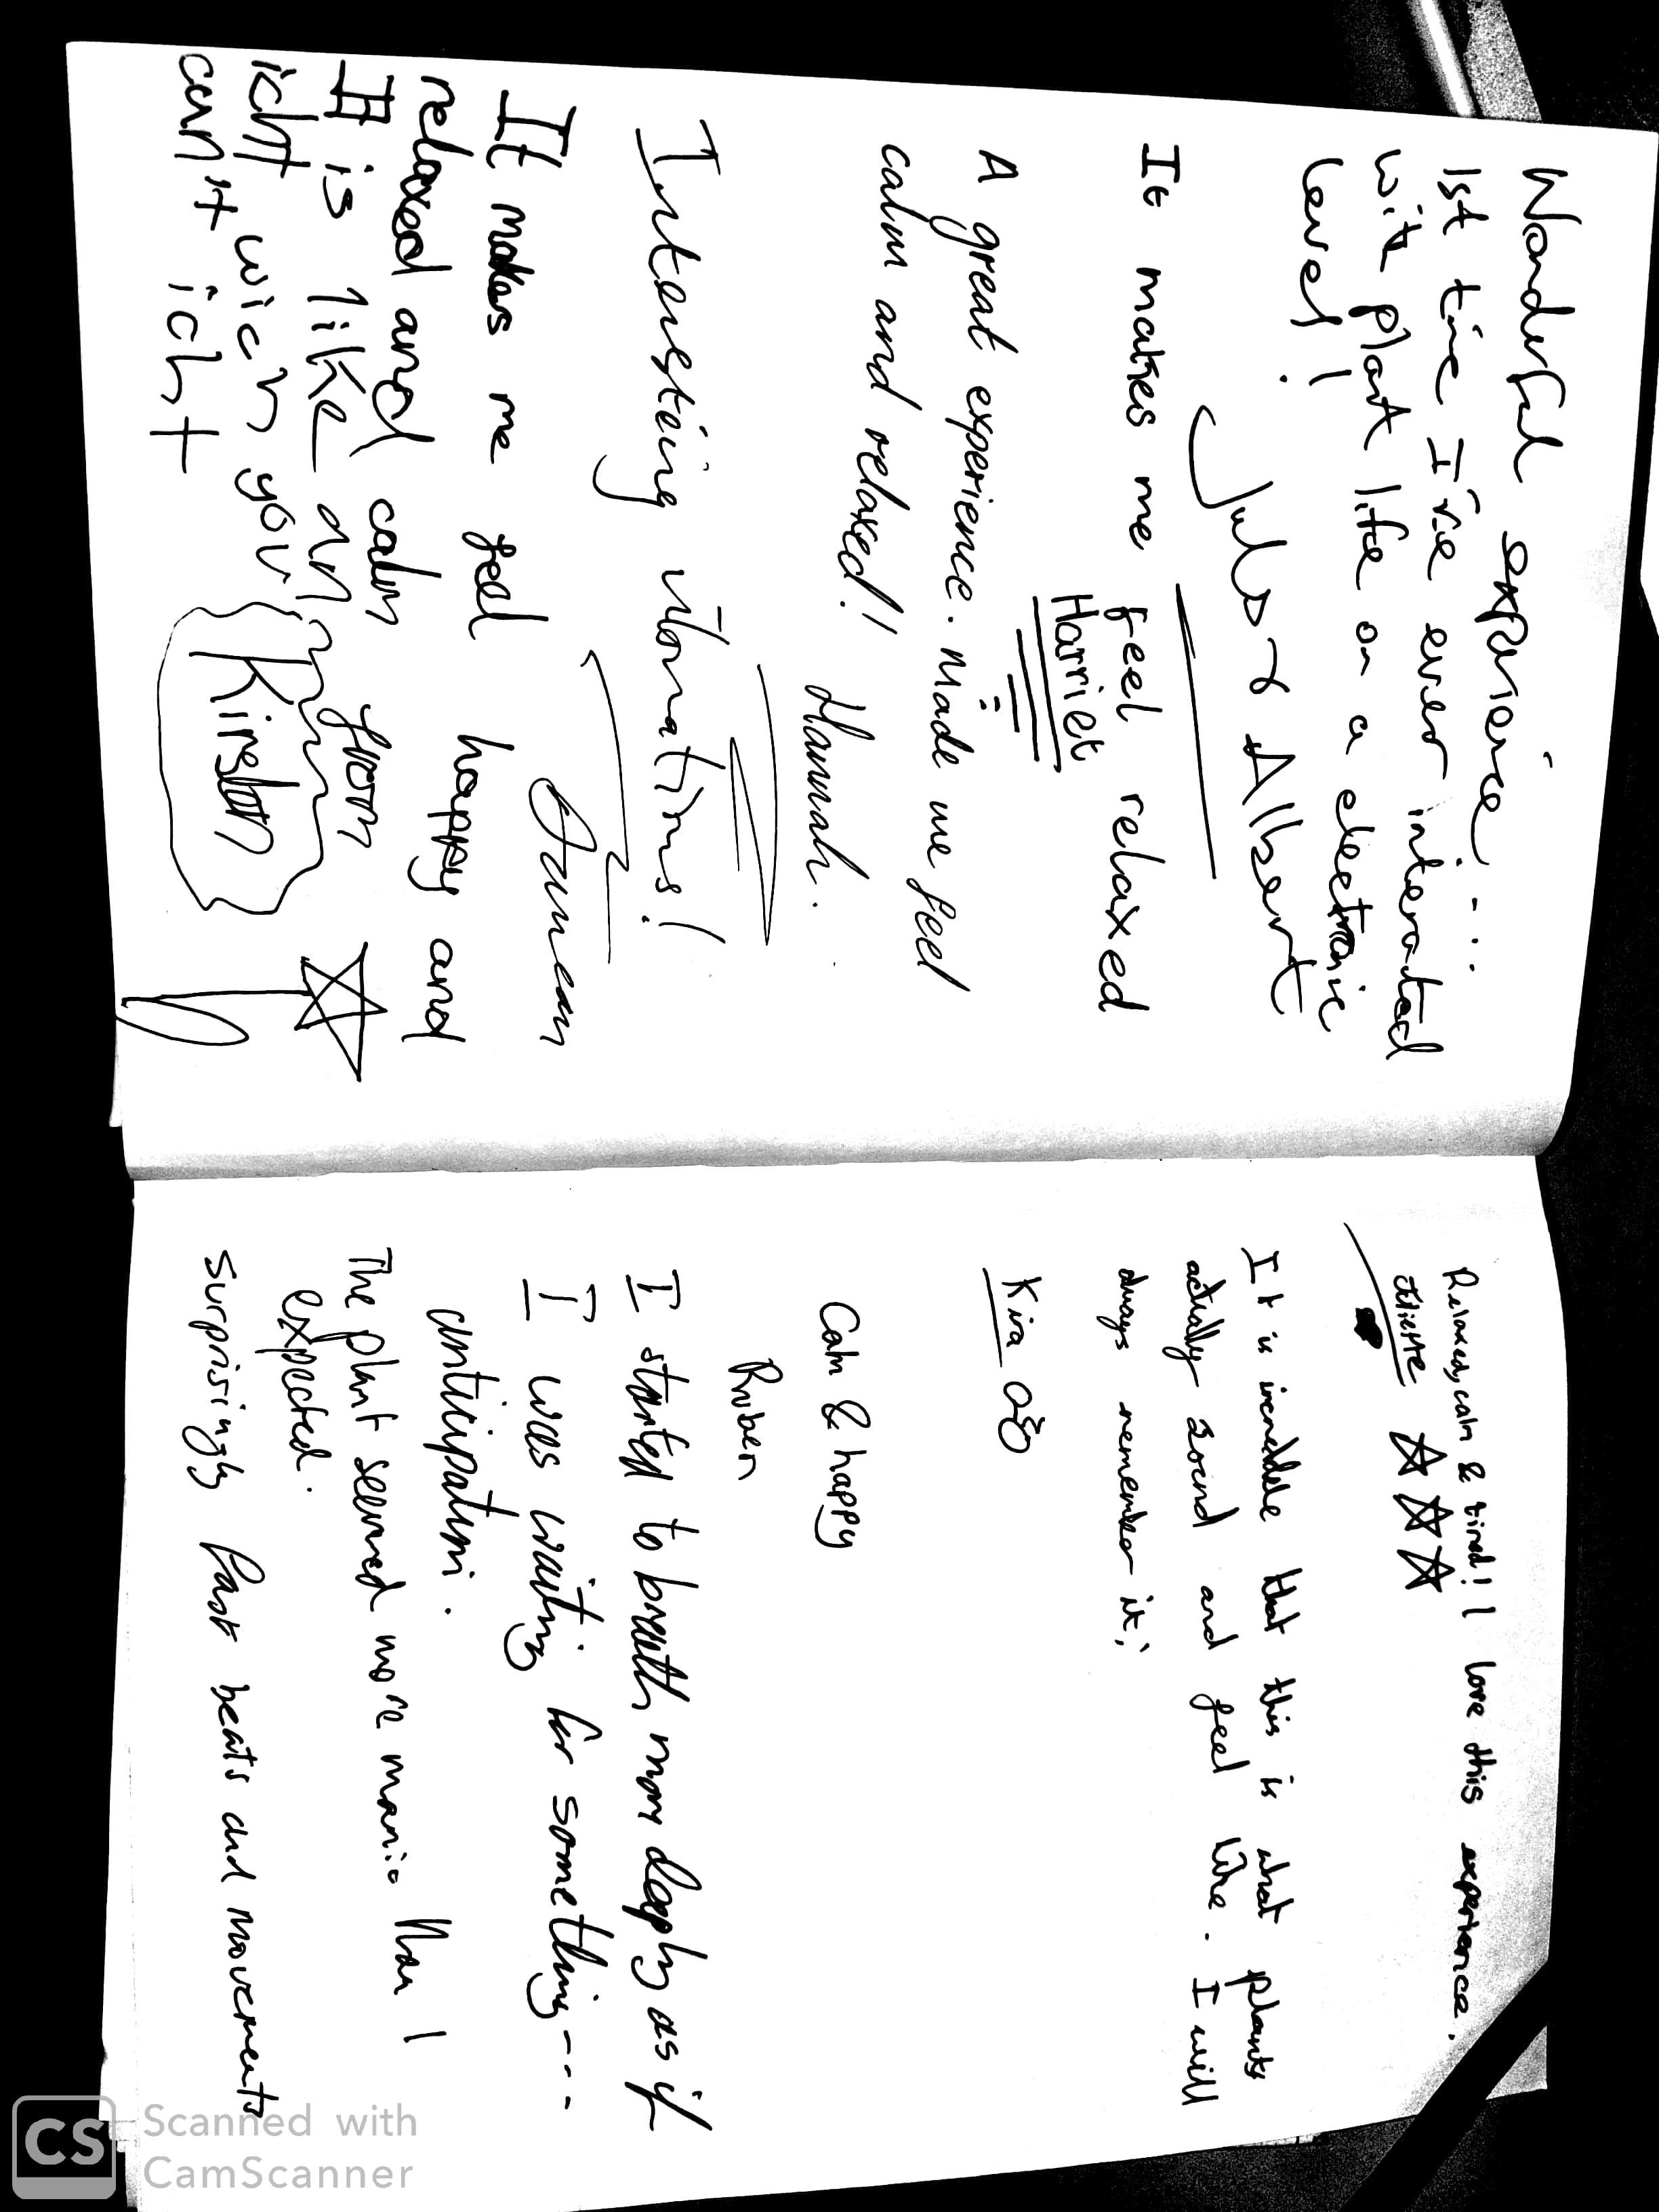 Wonderful experience....
1st time I've ever interacted
with plant life on a electronic
level!
Albert
It makes me feel relaxed
Harriet
A great experience. Made me feel
calm and relaxed!!
Hannah.
Interesting vibrations!
It makes me feel happy and
relaxed and calm from
It is like an
icht wich you
can't icht
Kirsten
Relaxed, calm & tired! I love this experience.
Juliette
It is incredible that this is what plants
actually sound and feel like. I will
always remember it;
Kira
Calm & happy
Ruben
I started to breath more deeply as if
I was waiting for something----
anticipation.
The plant seemed more manic than I
expected.
surprisingly fast beats and movements
CS Scanned with
CamScanner